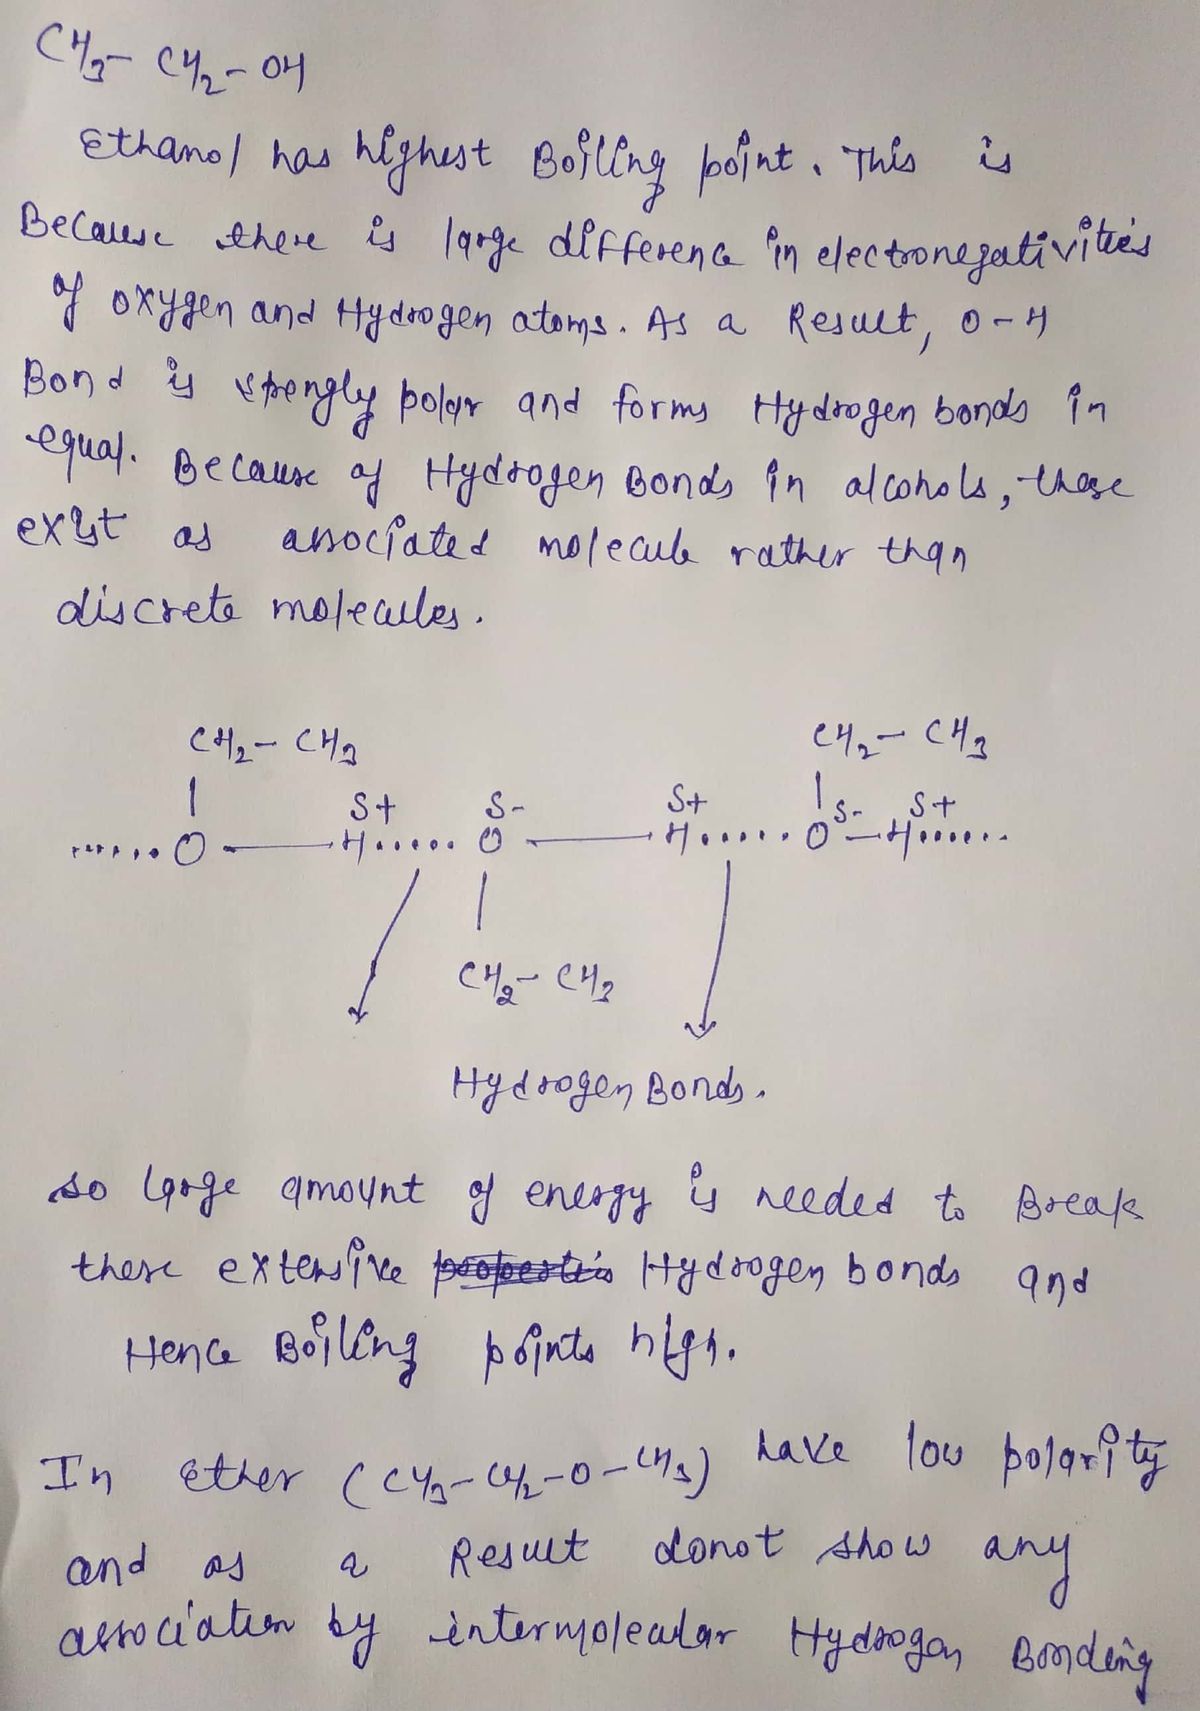 CH3- CH2-OH
Ethanol has highest Boiling point. This is
Because there is large difference in electronegativities
of oxygen and Hydrogen atoms. As a Result, O-H
Bond is strongly polar and forms Hydrogen bonds in
equal. Because of Hydrogen Bonds in alcohols, these
exist as associated molecule rather than
discrete molecules.
CH2- CH3 CH2- CH3
δ+ δ- δ+ δ- δ+
......O — H..... O — H...... O — H......
CH2- CH3
Hydrogen Bonds.
so large amount of energy is needed to Break
these extensive Hydrogen bonds and
Hence Boiling points high.
In Ether (CH3-CH2-O-CH3) have low polarity
and as a Result donot show any
association by intermolecular Hydrogen Bonding